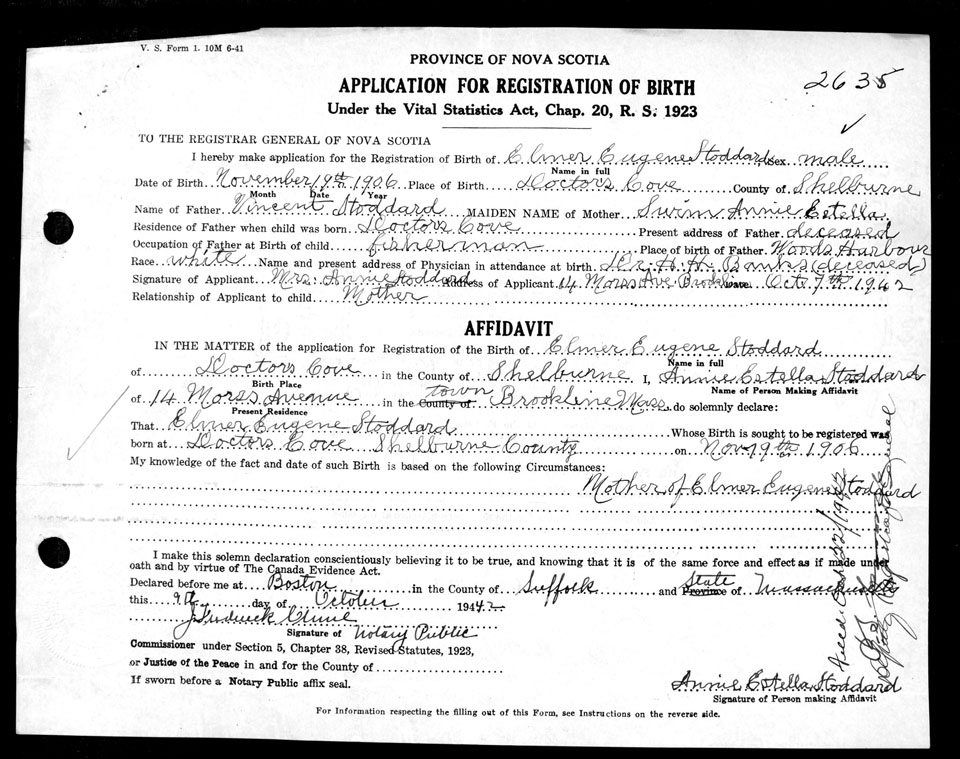 V. S. Form 1. 10M 6-41
PROVINCE OF NOVA SCOTIA
APPLICATION FOR REGISTRATION OF BIRTH
2635
Under the Vital Statistics Act, Chap. 20, R. S. 1923
TO THE REGISTRAR GENERAL OF NOVA SCOTIA
I hereby make application for the Registration of Birth of Elmer Eugene Stoddard Sex male
Name in full
Date of Birth November 19th 1906 Place of Birth Doctors Cove County of Shelburne
Month Date Year
Name of Father Vincent Stoddard MAIDEN NAME of Mother Swim Annie Estella
Residence of Father when child was born Doctors Cove Present address of Father deceased
Occupation of Father at Birth of child fisherman Place of birth of Father Woods Harbour
Race white Name and present address of Physician in attendance at birth Dr. H. H. Banks (deceased)
Signature of Applicant Mrs. Annie Stoddard Address of Applicant 14 Morss Ave. Date Oct. 7th 1942
Relationship of Applicant to child Mother
AFFIDAVIT
IN THE MATTER of the application for Registration of the Birth of Elmer Eugene Stoddard
Name in full
of Doctors Cove in the County of Shelburne I, Annie Estella Stoddard
Birth Place Name of Person Making Affidavit
of 14 Morss Avenue in the County of town Brookline Mass. do solemnly declare:
Present Residence
That Elmer Eugene Stoddard Whose Birth is sought to be registered was
born at Doctors Cove Shelburne County on Nov 19th 1906
My knowledge of the fact and date of such Birth is based on the following Circumstances:
Mother of Elmer Eugene Stoddard
I make this solemn declaration conscientiously believing it to be true, and knowing that it is of the same force and effect as if made under
oath and by virtue of The Canada Evidence Act.
Declared before me at Boston in the County of Suffolk and Province State of Massachusetts
this 9th day of October 1942
Signature of Notary Public
Commissioner under Section 5, Chapter 38, Revised Statutes, 1923,
or Justice of the Peace in and for the County of
If sworn before a Notary Public affix seal.
Annie Estella Stoddard
Signature of Person making Affidavit
For Information respecting the filling out of this Form, see Instructions on the reverse side.